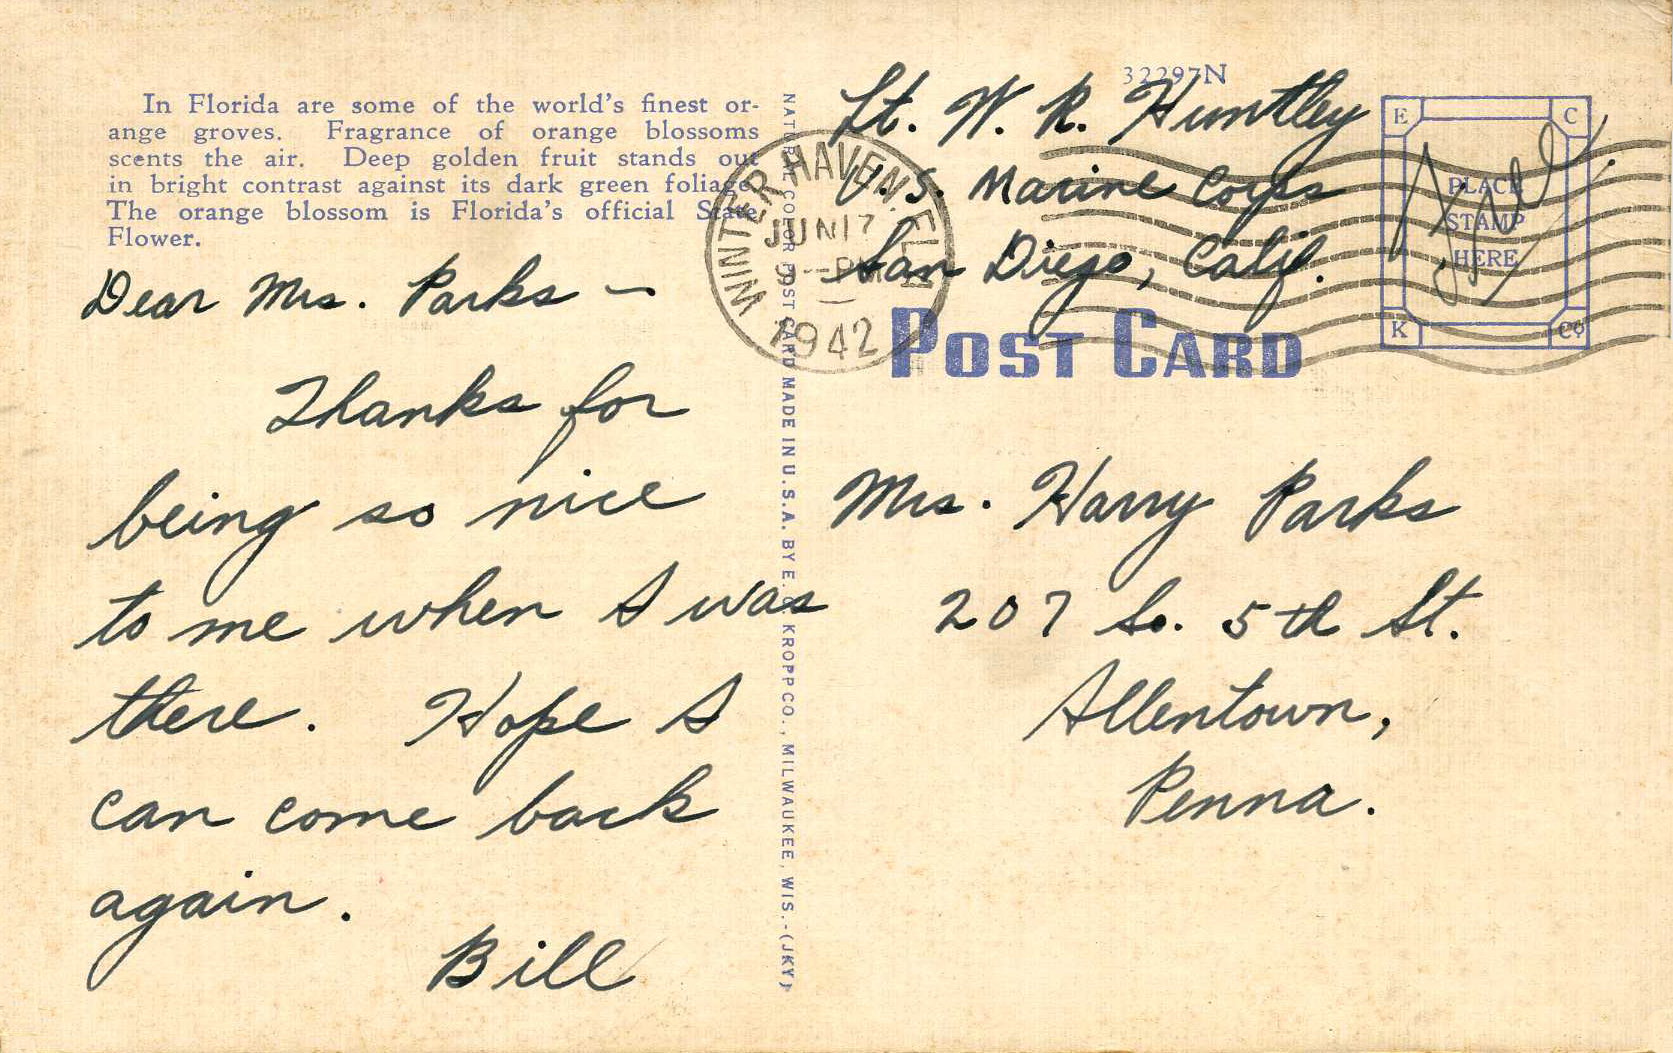 In Florida are some of the world's finest or-
ange groves. Fragrance of orange blossoms
scents the air. Deep golden fruit stands out
in bright contrast against its dark green foliage.
The orange blossom is Florida's official State
Flower.
Dear Mrs. Parks –
Thanks for
being so nice
to me when I was
there. Hope I
can come back
again.
Bill
NATURAL COLOR POST CARD MADE IN U.S.A. BY E. C. KROPP CO., MILWAUKEE, WIS.-(JKY)
32297N
Lt. W. R. Huntley
U. S. Marine Corps
San Diego, Calif.
WINTER HAVEN, FLA
JUN 17
9 - PM
1942
E C
PLACE
STAMP
HERE
K Co
POST CARD
Mrs. Harry Parks
207 So. 5th St.
Allentown,
Penna.